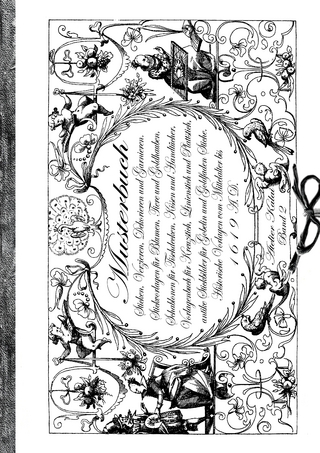 Musterbuch
Sticken, Verzieren, Dekorieren und Garnieren.
Stickvorlagen für Blumen, Tiere und Goldkanten.
Schablonen für Tischdecken, Kissen und Handtücher.
Vorlagenbuch für Kreuzstich, Linienstich und Plattstich
antike Stichblätter für Gobelin und Goldfaden Sticke.
Historische Vorlagen vom Mittelalter bis
1619 A.D.
Atelier
Band 2